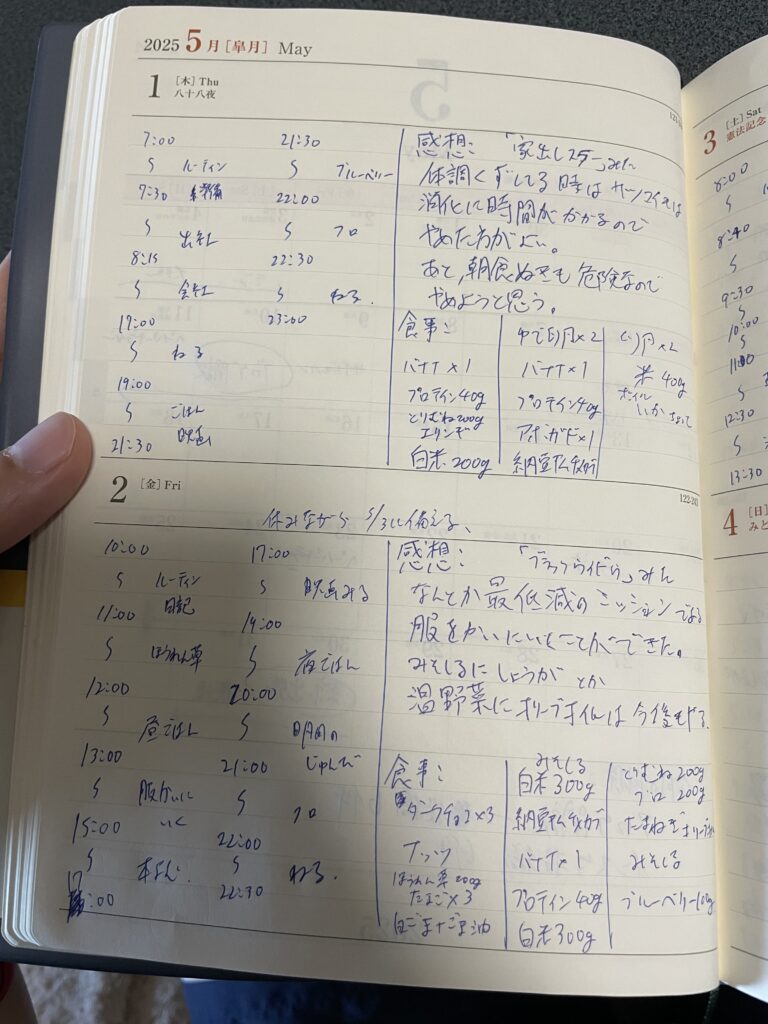 2025 5月 [皐月] May
1 [木] Thu
八十八夜
7:00 21:30
ルーティン ブルーベリー
7:30 準備 22:00
出社 フロ
8:15 22:30
会社 ねる.
17:00 23:00
ねる
19:00
ごはん
21:30 映画
感想: 「家出レスラー」みた
体調くずしてる時はサツマイモは
消化に時間がかかるので
やめた方がよい。
あと、朝食ぬきも危険なので
やめようと思う。
食事: ゆで卵×2 卵×2
バナナ×1 バナナ×1 米 400g
プロテイン40g プロテイン40g ボイル
とりむね200g いか
エリンギ アボガド×1
白米 200g 納豆
2 [金] Fri 122-243
休みながら 5/3に備える、
10:00 17:00
ルーティン 映画みる
日記
11:00 19:00
ほうれん草 夜ごはん
12:00 20:00
昼ごはん 明日の
13:00 21:00 じゅんび
服かいに フロ
いく
15:00 22:00
本よむ. ねる.
17:00 22:30
感想: みた
なんとか最低減のミッションである
服をかいにいくことができた。
みそしるにしょうがとか
温野菜にオリーブオイルは今後もする.
食事: みそしる とりむね 200g
白米 300g ブロ 200g
ダークチョコ×3 納豆 たまねぎ
ナッツ バナナ×1 みそしる
ほうれん草 200g
たまご×3 プロテイン 40g ブルーベリー100g
白ごま+ごま油 白米 300g
3 [土] Sat
憲法記念
6:00
8:40
9:30
10:00
11:00
12:30
13:30
4 [日]
みど